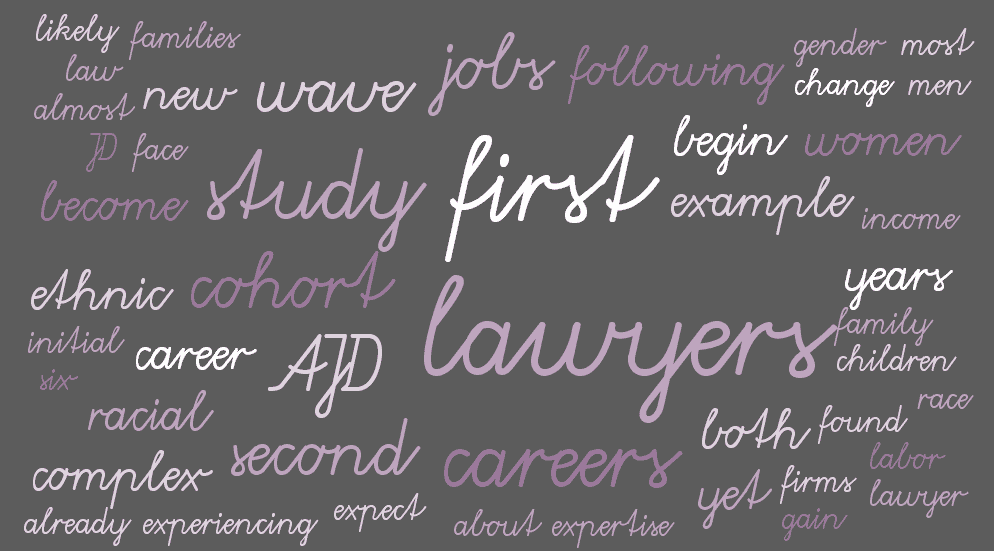 likely families
law
almost new wave
jobs following
gender most
change men
JD face
become study first
begin women
example income
ethnic cohort
lawyers
years
family
children
initial career AJD
six
racial
race
complex second careers
both found
labor
yet firms lawyer
gain
already experiencing expect
about expertise